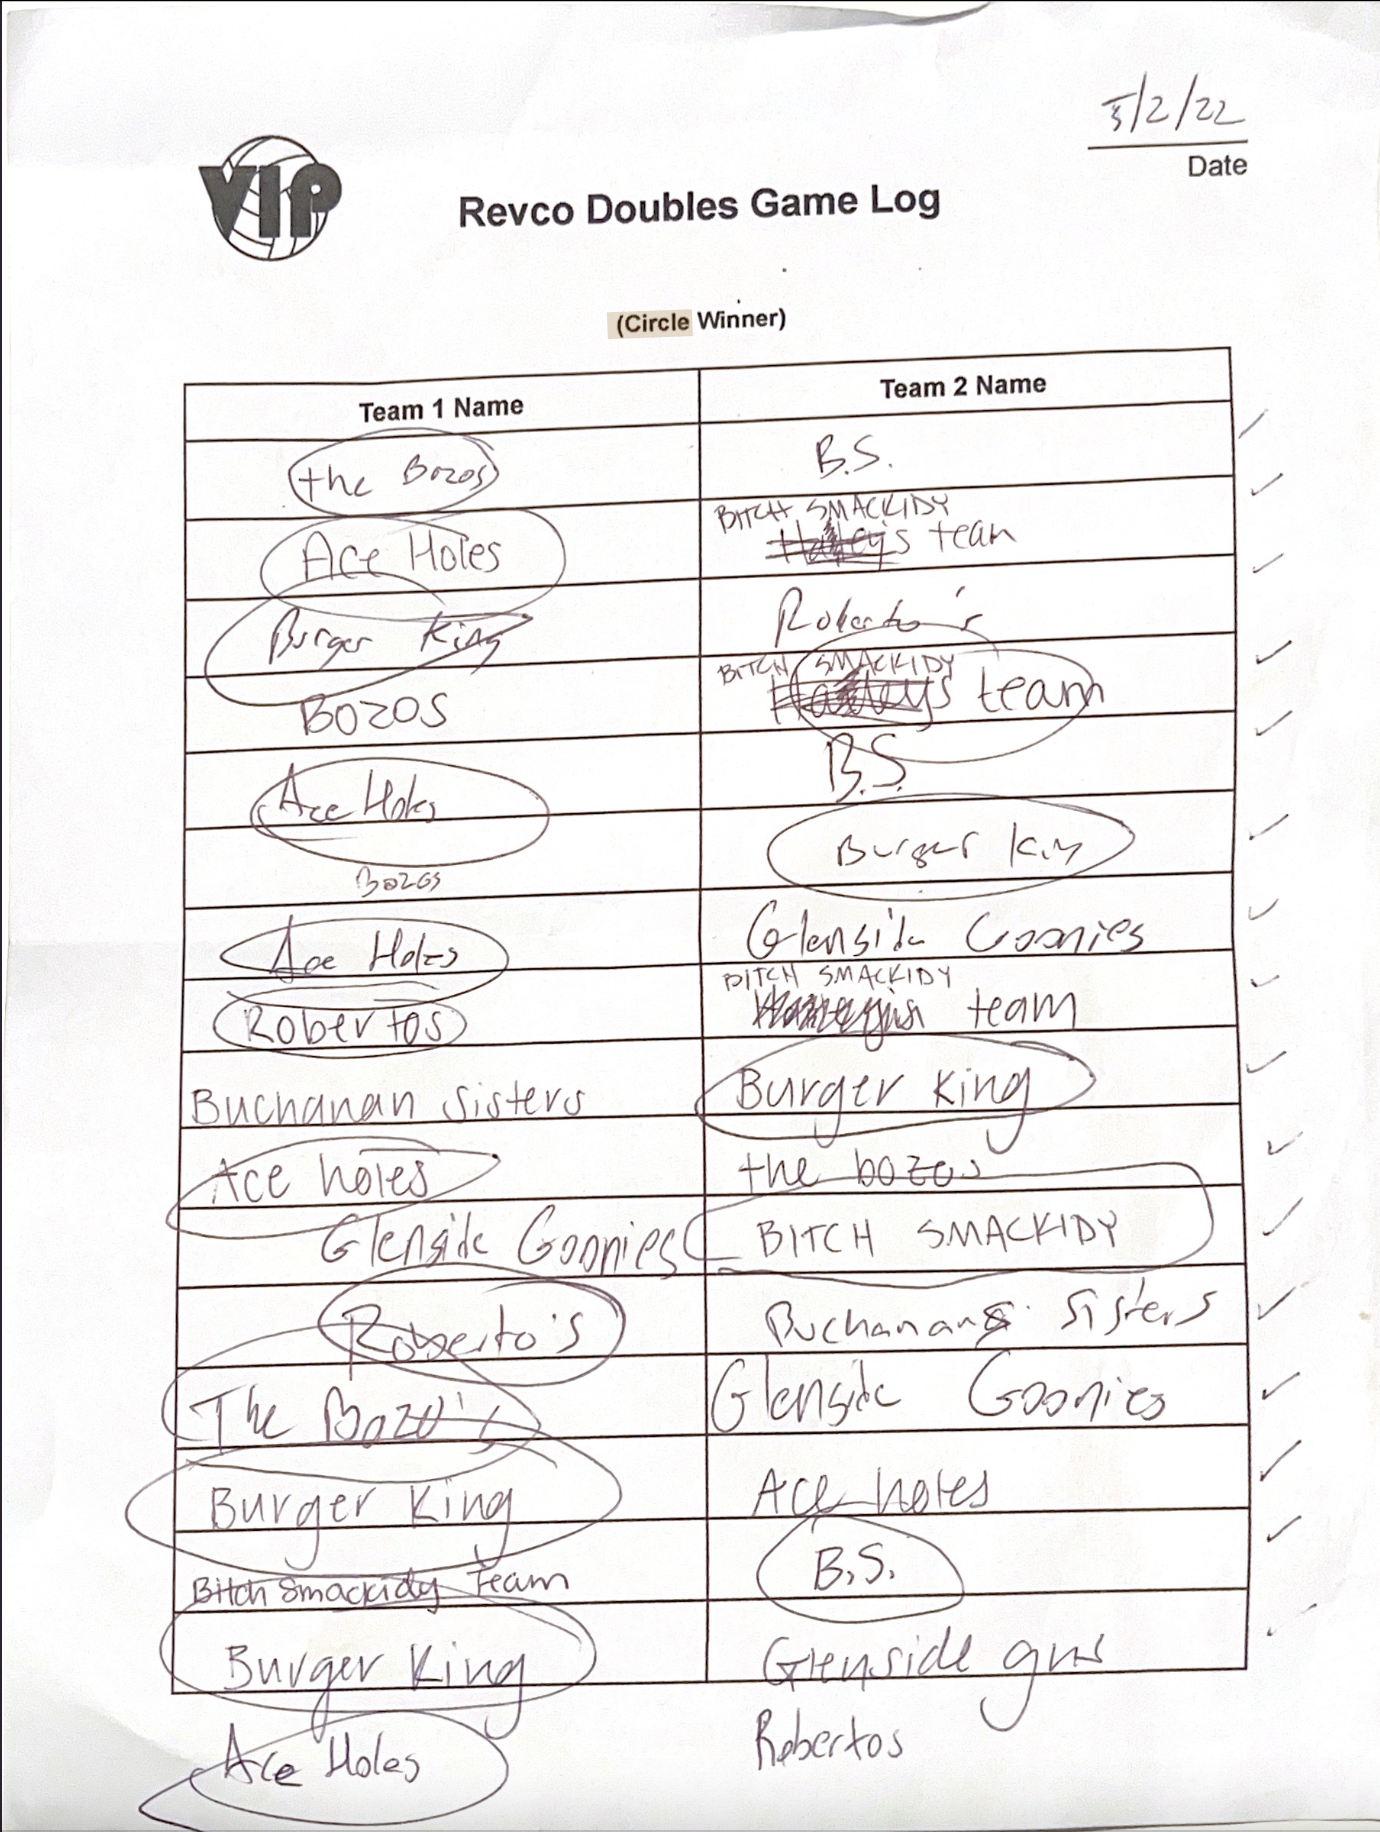 5/2/22
Date
VIP
Revco Doubles Game Log
(Circle Winner)
Team 1 Name Team 2 Name
the Bozos B.S.
BITCH SMACKIDY
Ace Holes team
Burger King Roberto's
BITCH SMACKIDY
BOZOS team
Ace Holes B.S.
Bozos Burger King
Ace Holes Glenside Goonies
BITCH SMACKIDY
Robertos team
Buchanan sisters Burger King
Ace holes the bozos
Glenside Goonies BITCH SMACKIDY
Roberto's Buchanan Sisters
The Bozo's Glenside Goonies
Burger King Ace holes
Bitch Smackidy Team B.S.
Burger King Glenside
Ace Holes Robertos